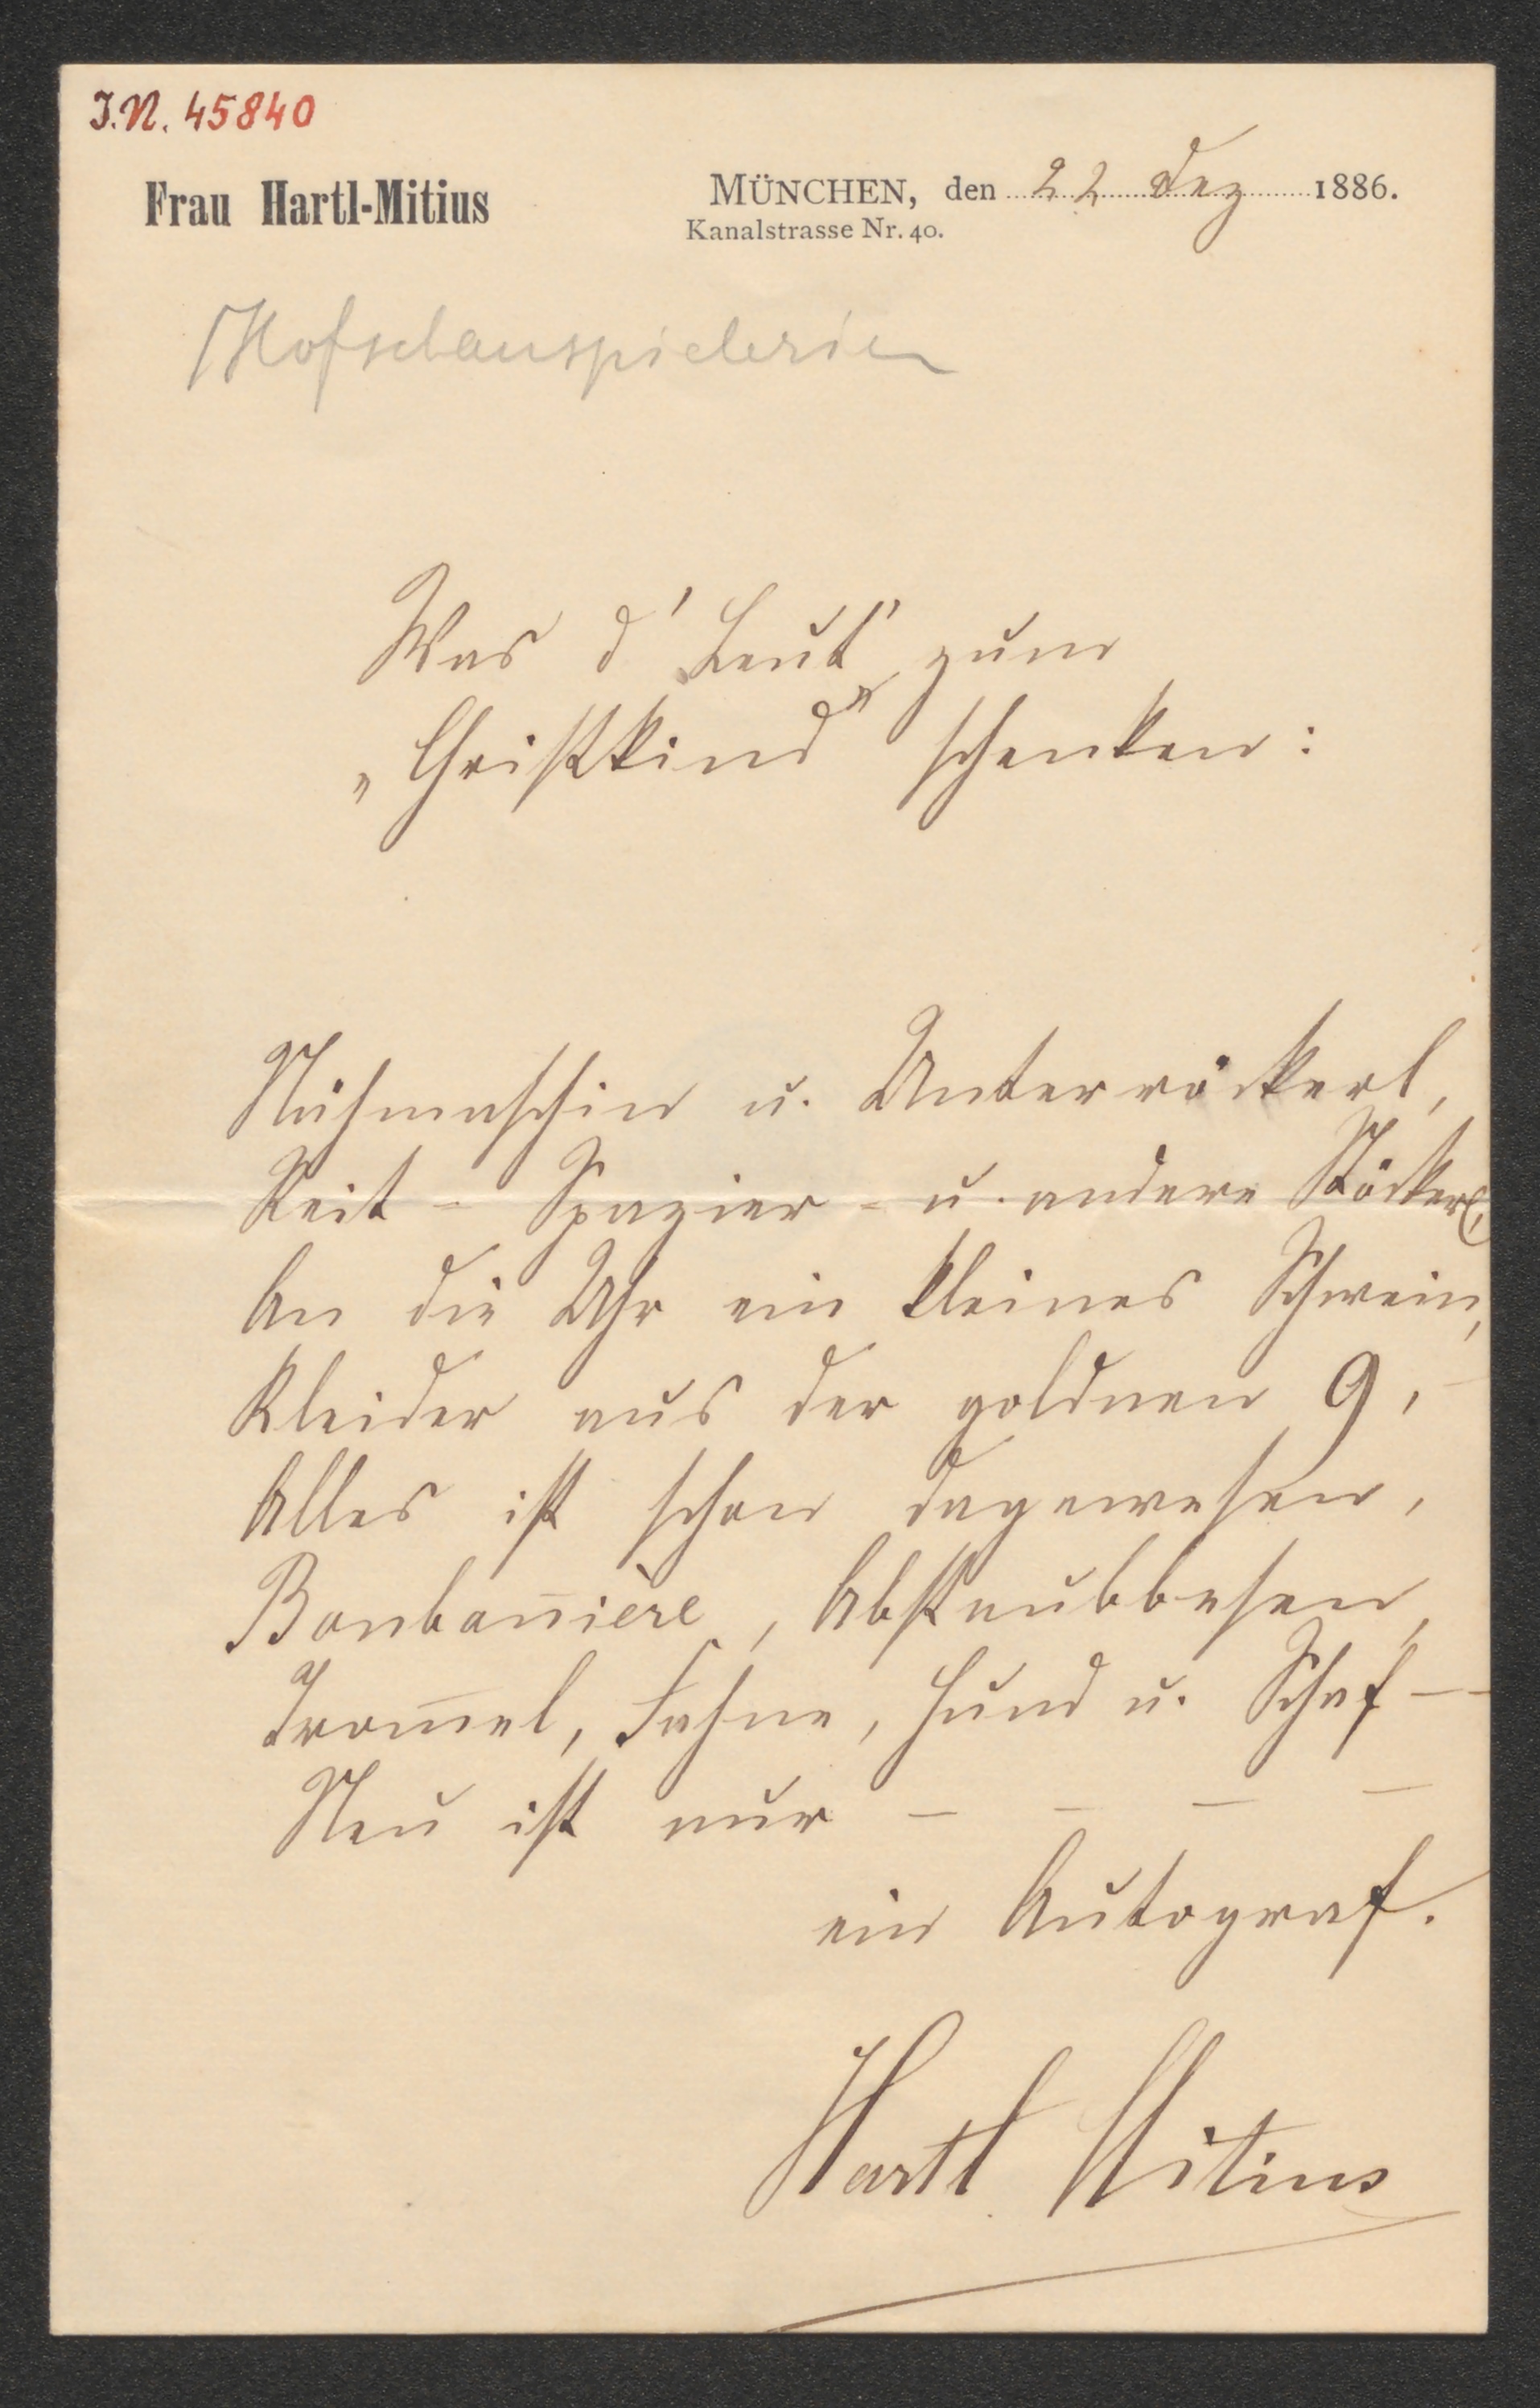 I.N. 45840
Frau Hartl-Mitius
MÜNCHEN, den 22 Dez 1886.
Kanalstrasse Nr. 40.
Hofschauspielerin
Was d' Leut' zum
„Christkind" schenken:
Nähmaschin u. Unterröckerl,
Reit- Spazier- u. andere Stöckerl,
An die Uhr ein kleines Schwein,
Kleider aus der goldnen 9,
Alles ist schon dagewesen,
Bonbon̄ière, Abstaubbesen,
Trom̄el, Fahne, Hund u. Schaf --
Neu ist nur - - - -
ein Autograf.
Hartl Mitius